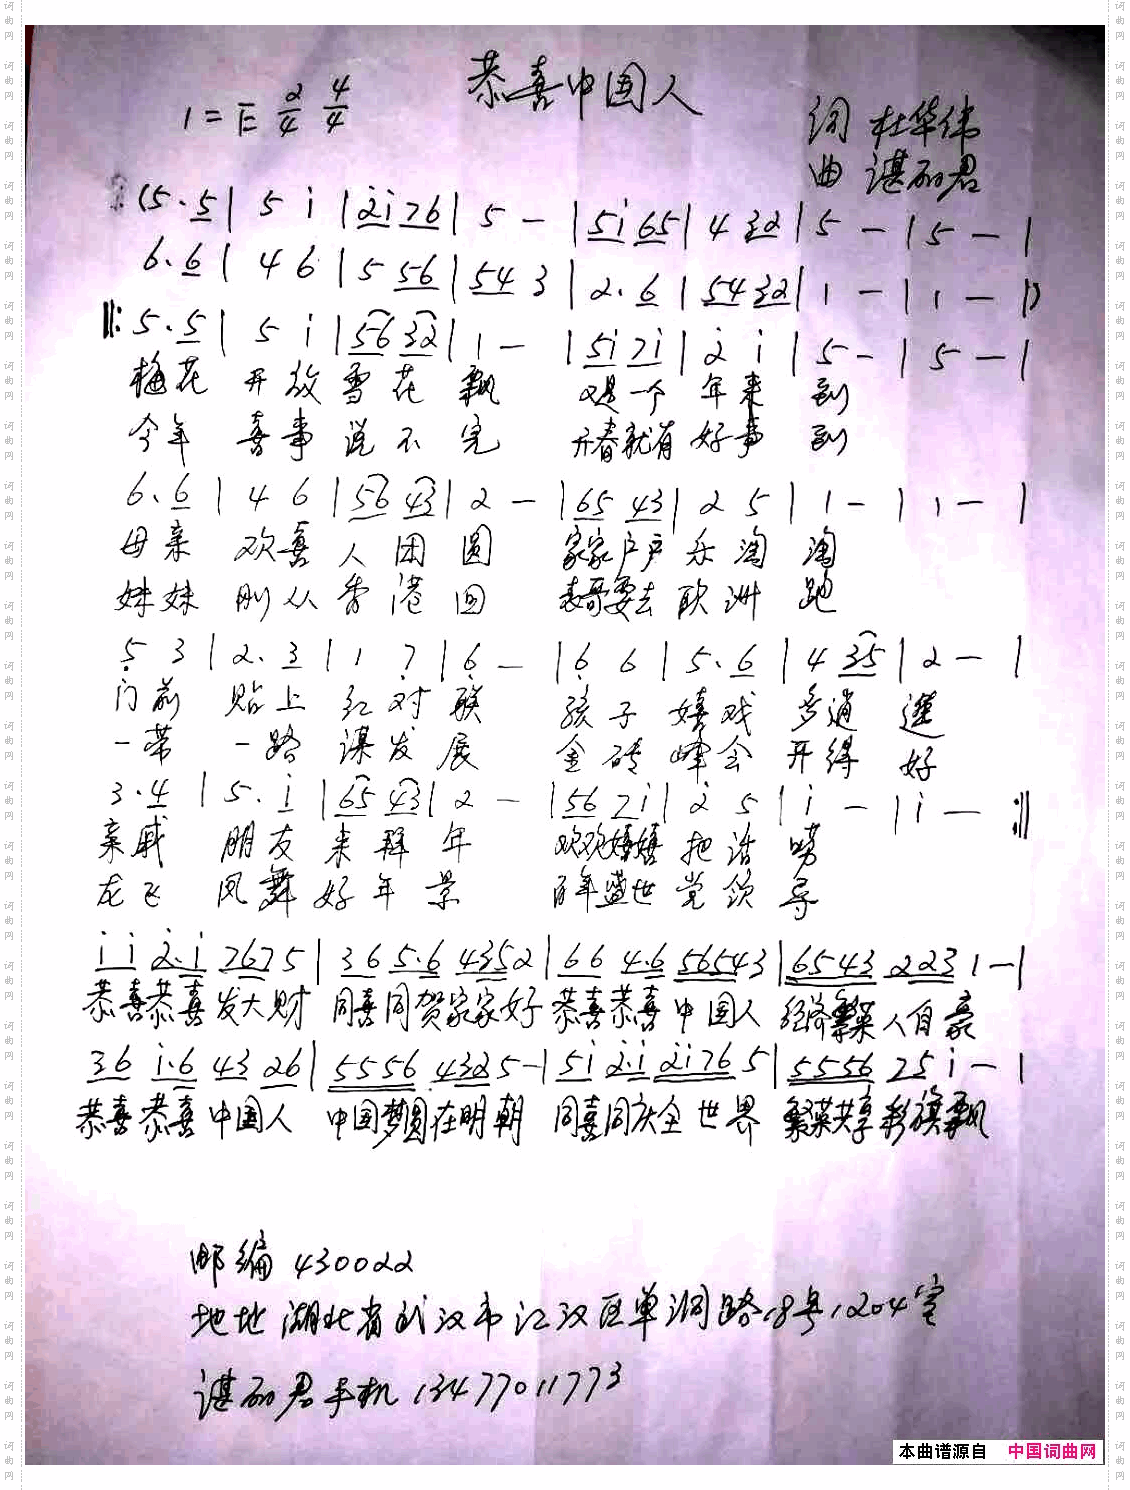 恭喜中国人
1=E 2/4 4/4
词 杜华伟
曲 谌丽君
(5·5| 5 i |2̇i76| 5 - |5i65| 4 32 |5 - |5 - |
6·6 | 4 6 |5 56 |54 3 |2·6 |5432| 1 - | 1 - |)
‖:5·5| 5 i |56 32| 1 - |5i7i| 2̇ i |5 - | 5 - |
梅花 开放 雪花 飘 又是一个 年来 到
今年 喜事 说不完 开春就有 好事 到
6·6 | 4 6 |56 43| 2 - |65 43| 2 5 | 1 - | 1 - |
母亲 欢喜 人团圆 家家户户 乐淘 淘
妹妹 刚从 香港回 表哥要去 欧洲 跑
5̣ 3 |2·3 | 1 7̣ |6̣ - |6̣ 6 |5·6 |4 35 |2 - |
门前 贴上 红对联 孩子 嬉戏 多逍 遥
一带 一路 谋发展 金砖 峰会 开得 好
3·4 |5·i |65 43| 2 - |56 7i| 2̇ 5 | i - | i - :‖
亲戚 朋友 来拜年 欢欢嬉嬉 把话 唠
龙飞 凤舞 好年景 百年盛世 党领 导
i i 2̇·i 7675 |36 5·6 4352 |66 4·6 56543 |6543 223 1 - |
恭喜恭喜 发大财 同喜同贺家家好 恭喜恭喜 中国人 经济繁荣人自豪
36 i·6 43 26 |5556 4325 - |5i 2̇·i 2̇i76 5 |5556 25 i - |
恭喜恭喜 中国人 中国梦圆在明朝 同喜同庆全世界 繁荣共享彩旗飘
邮编 430022
地址 湖北省武汉市江汉区单洞路18号1204室
谌丽君手机 13477011773
本曲谱源自 中国词曲网